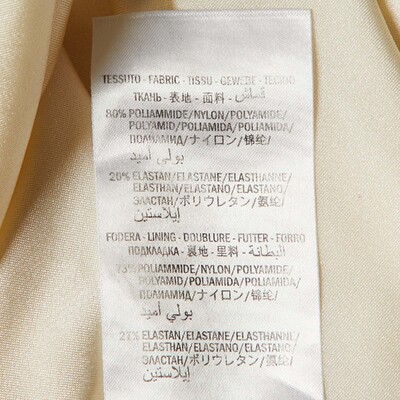 TESSUTO - FABRIC - TISSU - GEWEBE - TECIDO
ТКАНЬ - 表地 - 面料 - قماش
80% POLIAMMIDE/NYLON/POLYAMIDE/
POLYAMID/POLIAMIDA/POLIAMIDA/
ПОЛИАМИД/ナイロン/锦纶/
بولي أميد
20% ELASTAN/ELASTANE/ELASTHANNE/
ELASTHAN/ELASTANO/ELASTANO/
ЭЛАСТАН/ポリウレタン/氨纶/
إيلاستين
FODERA - LINING - DOUBLURE - FUTTER - FORRO
ПОДКЛАДКА - 裏地 - 里料 - البطانة
73% POLIAMMIDE/NYLON/POLYAMIDE/
POLYAMID/POLIAMIDA/POLIAMIDA/
ПОЛИАМИД/ナイロン/锦纶/
بولي أميد
27% ELASTAN/ELASTANE/ELASTHANNE/
ELASTHAN/ELASTANO/ELASTANO/
ЭЛАСТАН/ポリウレタン/氨纶/
إيلاستين